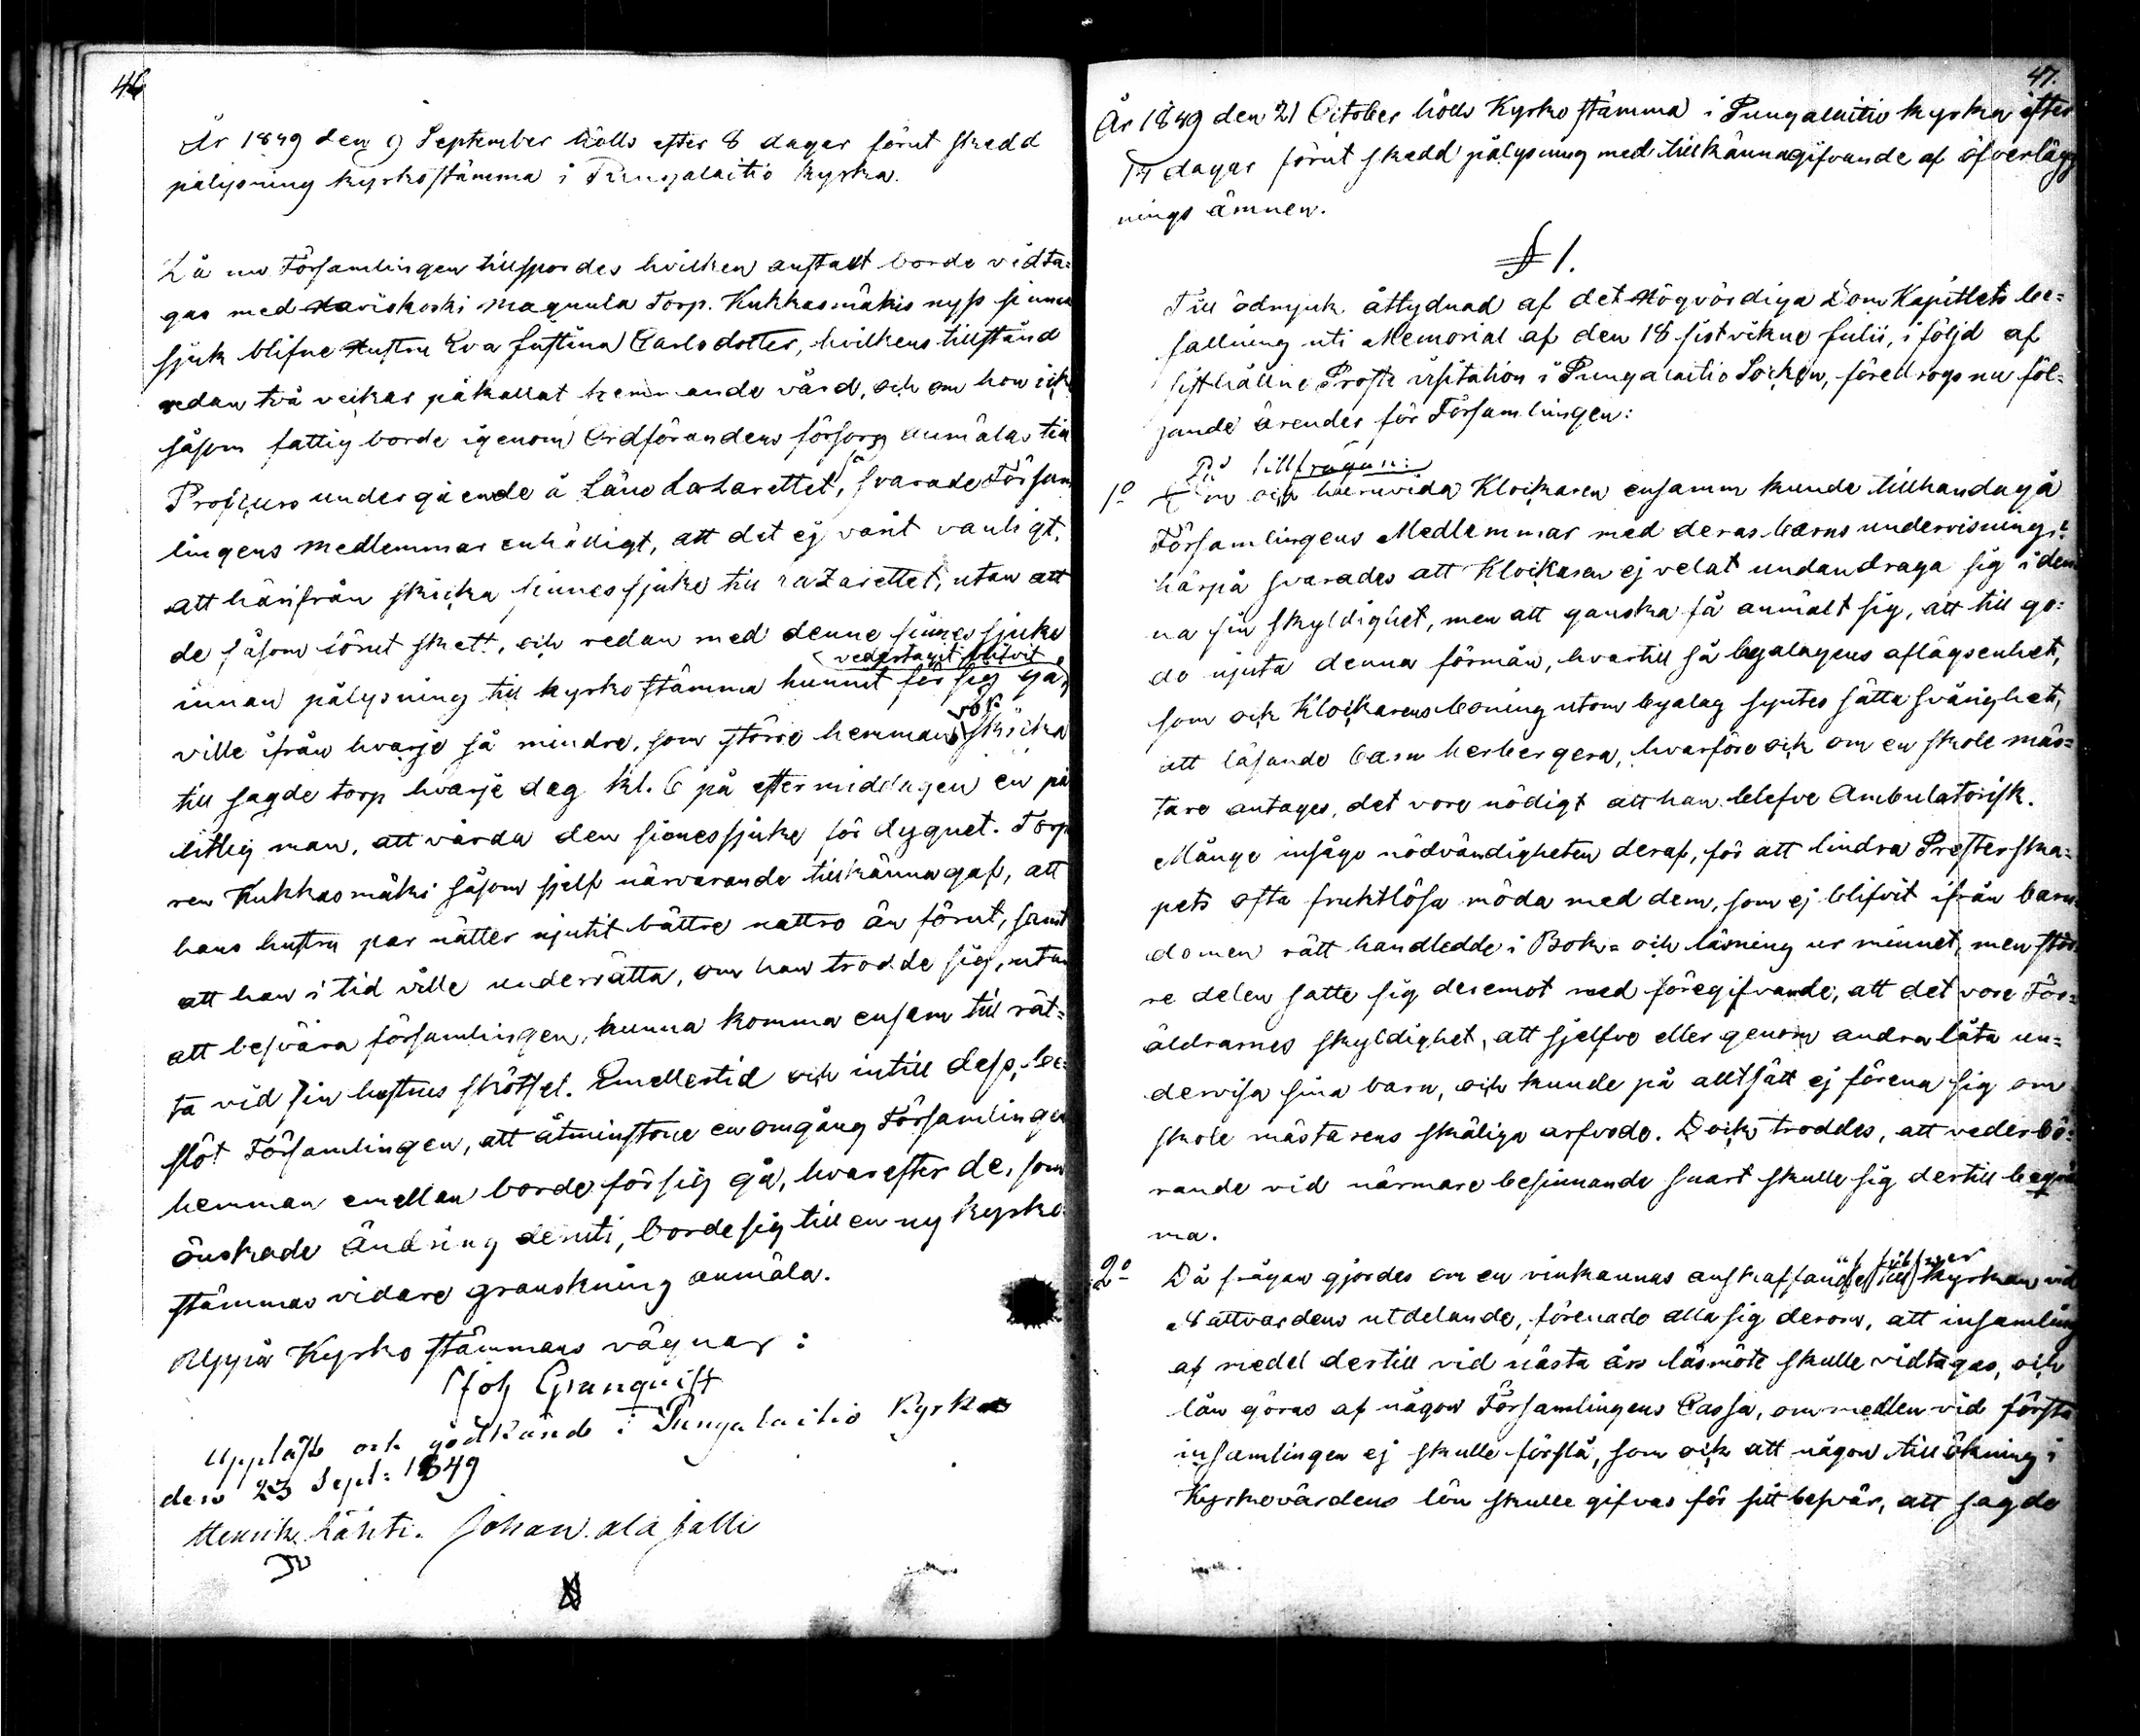 46
År 1849 den 9 September hölls efter 8 dagar förut skedd
pålysning kyrkostämma i Pungalaitio kyrka.
Då nu Församlingen tillspordes hvilken anstalt borde vidta=
gas med Haviskoski Magnula Torp. Kukkasmäkis nyss sinnes
sjuk blifne Hustru Eva Justina Carlsdotter, hvilkens tillstånd
redan två veckor påkallat hemmande vård, och om hon ick
såsom fattig borde igenom Ordförandens försorg anmälas till
Profcurs undergående å Läns Lazarettet, så svarade Försam
lingens medlemmar enhälligt, att det ej varit vanligt,
att härifrån skicka sinnessjuke till Lazarettet, utan att
de såsom förut skett, och redan med denne sinnessjuke
vedertagit blifvit
innan pålysning till kyrkostämma hunnit för sig gå,
ville ifrån hvarje så mindre, som större hemman skicka
till sagde torp hvarje dag kl. 6 på eftermiddagen en på
litlig man, att vårda den sinnessjuke för dygnet. Torp
ren Kukkasmäki såsom sjelf närvarande tillkännagaf, att
hans hustru par nätter njutit bättre nattro än förut, samt
att han i tid ville underrätta, om han trodde sig, utan
att besvära församlingen, kunna komma ensam till rät=
ta vid sin hustrus skötsel. Emellertid och intill dess, be=
slöt Församlingen, att åtminstone en omgång Församlingen
hemman emellan borde för sig gå, hvarefter de, som
önskade Ändring deruti, borde sig till en ny Kyrko=
stämmas vidare granskning anmäla.
Uppå Kyrko stämmans vägnar:
Joh Granquist
Uppläst och godkändt i Pungalaitio Kyrka
den 23 Sept: 1849
Henrik Lähti. Johan ala jalli
47.
År 1849 den 21 October hölls Kyrko stämma i Pungalaitio kyrka efter
14 dagar förut skedd pålysning med tillkännagifvande af öfverlägg
nings ämnen.
§ 1.
Till ödmjuk åtlydnad af det Högvördiga Dom Kapitlets be=
fallning uti Memorial af den 18 sistvikne Julii, i följd af
sisthållne Prosts visitation i Pungalaitio Socken, föredrogs nu föl=
jande ärender för Församlingen:
På tillfrågan:
1o Om och huruvida Klockaren ensamm kunde tillhandagå
Församlingens Medlemmar med deras barns undervisning?
härpå svarades att Klockaren ej velat undandraga sig i den
na sin skyldighet, men att ganska få anmält sig, att till go=
do njuta denna förmån, hvartill så byalagens aflägsenhet,
som ock Klockarens boning utom byalag syntes sätta svårighet,
att läsande barn herbergera, hvarföre ock om en skole mäs=
tare antages, det vore nödigt att han blefve Ambulatorisk.
Månge insågo nödvändigheten deraf, för att lindra Presterska=
pets ofta fruktlösa möda med dem, som ej blifvit ifrån barn
domen rätt handledde i Bok= och läsning ur minnet, men stör
re delen satte sig deremot med föregifvande, att det vore För=
äldrarnes skyldighet, att sjelfve eller genom andra låta un=
dervisa sina barn, och kunde på alltsätt ej förena sig om
skole mästarens skäliga arfvode. Dock troddes, att vederbö=
rande vid närmare besinnande snart skulle sig dertill beqvä
ma.
2o Då frågan gjordes om en vinkannas anskaffande af silfver till kyrkan vid
Nattvardens utdelande, förenade alla sig derom, att insamling
af medel dertill vid nästa års läsmöte skulle vidtagas, och
lån göras af någon Församlingens Cassa, om medlen vid första
insamlingen ej skulle förslå, som ock att någon tillökning i
Kyrkovärdens lön skulle gifvas för sitt besvär, att sagde